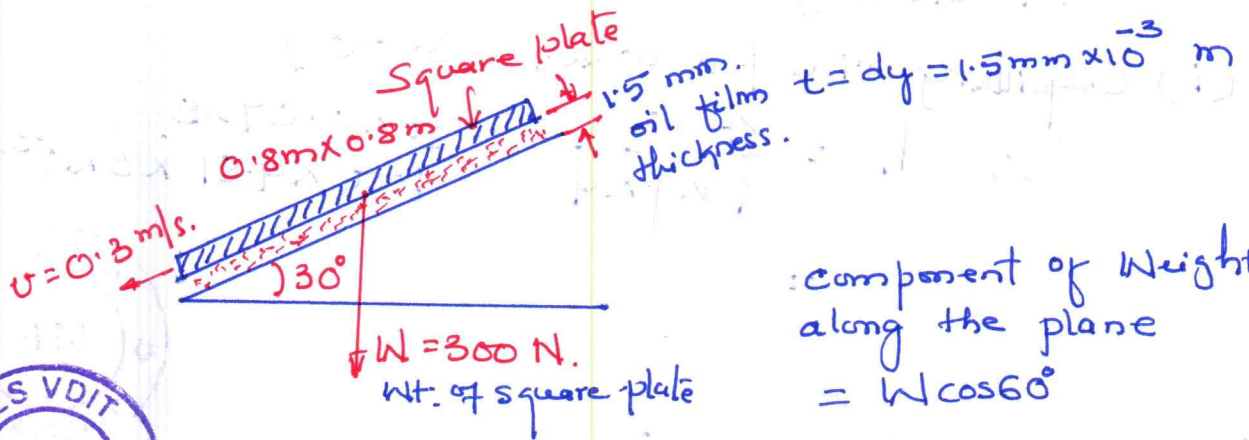 Square plate
0.8m X 0.8m
1.5 mm.
oil film
thickness.
t = dy = 1.5mm x10⁻³ m
v=0.3 m/s.
30°
W = 300 N.
Wt. of square plate
: component of Weight
along the plane
= W cos60°
LS VDIT